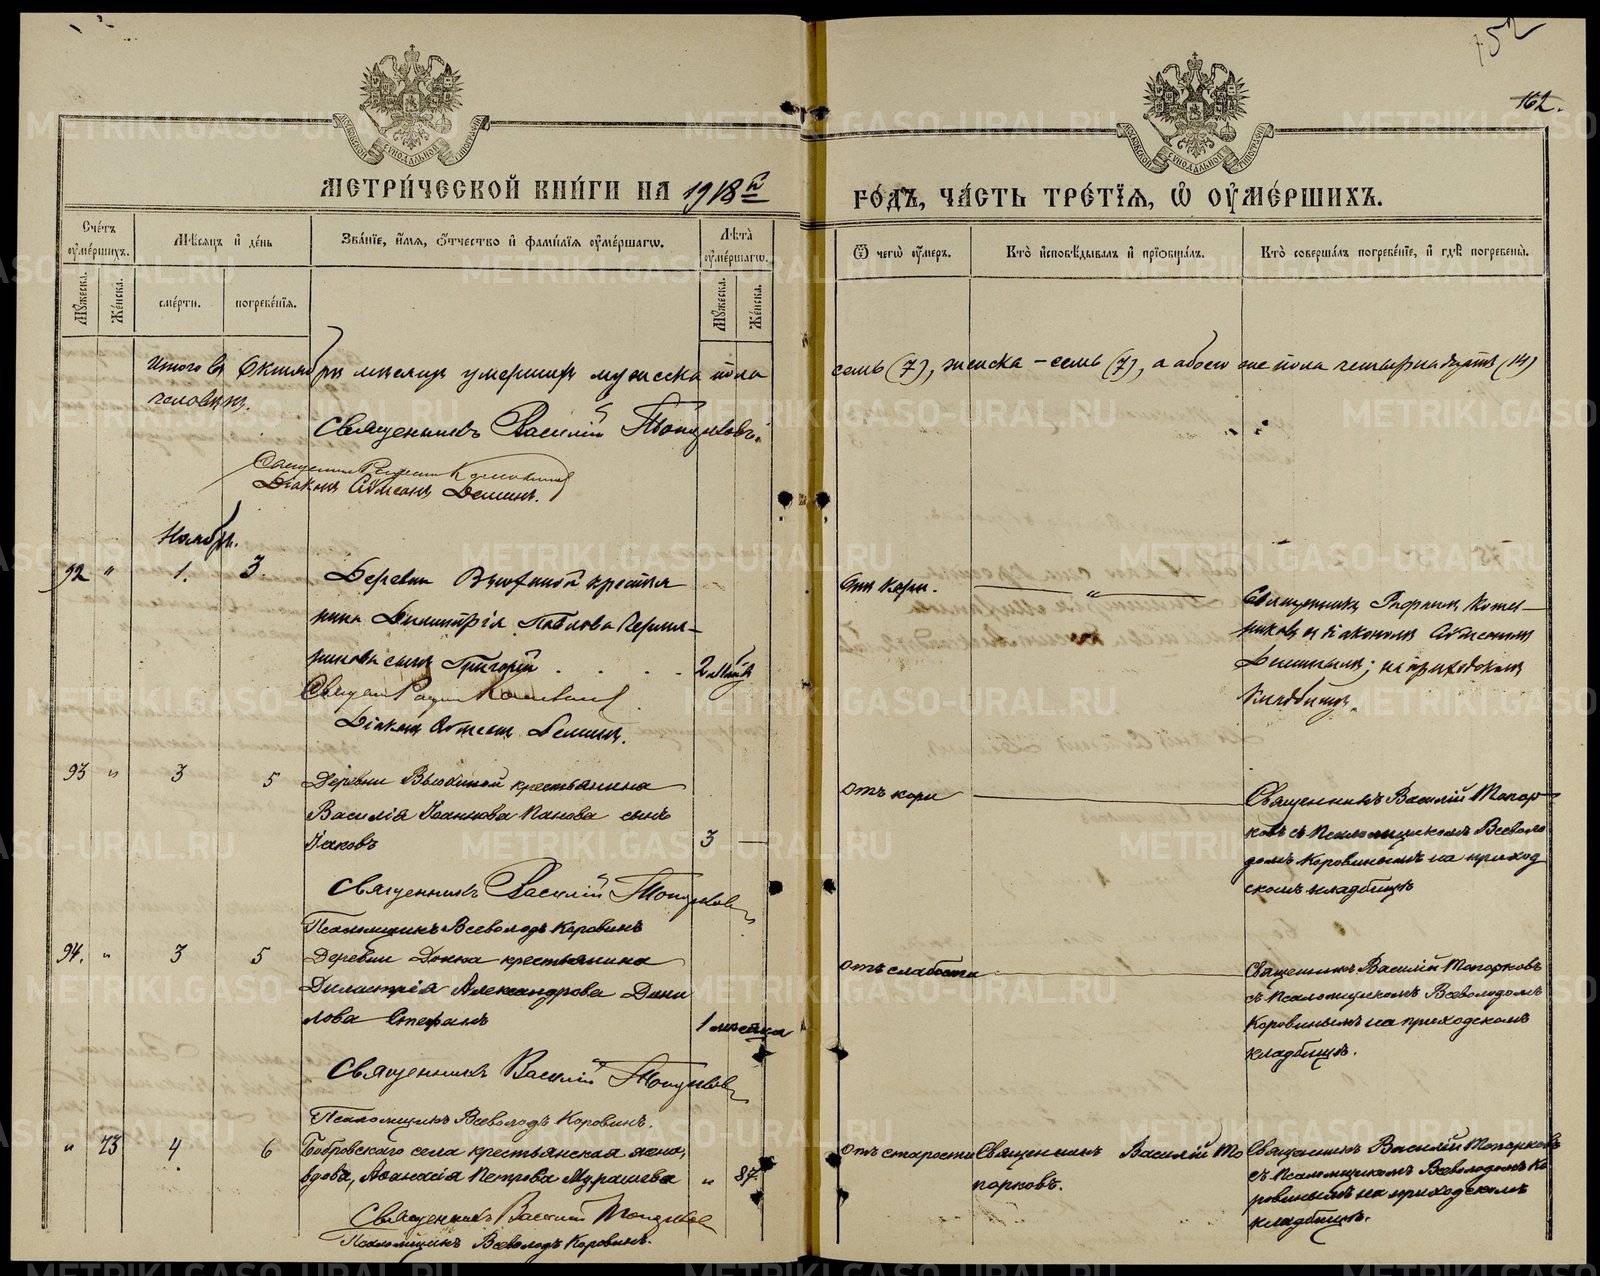 152
162.
МЕТРИ́ЧЕСКОЙ КНИ́ГИ НА 1918й
ГО́ДЪ, ЧА́СТЬ ТРЕ́ТЇѦ, Ѿ ОУМЕ́РШИХЪ.
Сче́тъ оуме́ршихъ.
Мѣ́сяцъ и́ де́нь
Зва́нїе, и́мя, о́тчество и́ фами́лїя оуме́ршагѡ.
Лѣ́та оуме́ршагѡ.
Му́жеска.
Же́нска.
сме́рти.
погребе́нїя.
Му́жеска.
Же́нска.
Ѿ чегѡ̀ оу́меръ.
Кто̀ и́сповѣ́дывалъ и́ прїѡбща́лъ.
Кто̀ соверша́лъ погребе́нїе, и́ гдѣ̀ погребены̀.
Итого въ Октябрѣ мѣсяцѣ умершихъ мужеска пола
человѣкъ.
семь (7), женска – семь (7), а обоего же пола четырнадцать (14)
Священникъ Василій Топорковъ.
Діаконъ Деминъ.
Ноябрь.
92 " 1. 3.
Деревни крестья
нина Димитрія Павлова
сынъ Григорій . . . .
2 мѣс.
Діаконъ Деминъ.
отъ кори. — " —
Священникъ
и діакономъ
Деминымъ; на приходскомъ
кладбищѣ.
93 " 3 5
Деревни Вьюхиной крестьянина
Василія Іоаннова Панова сынъ
Іаковъ
3 —
Священникъ Василій Топорковъ
Псаломщикъ Всеволодъ Коровинъ
отъ кори
Священникъ Василій Топор
ковъ съ Псаломщикомъ Всеволо
домъ Коровинымъ на приход
скомъ кладбищѣ
94. " 3 5
Деревни крестьянина
Димитрія Александрова Дани
лова Стефанъ
1 мѣсяца
Священникъ Василій Топорковъ
Псаломщикъ Всеволодъ Коровинъ.
отъ слабости
Священникъ Василій Топорковъ
съ Псаломщикомъ Всеволодомъ
Коровинымъ на приходскомъ
кладбищѣ.
" 73 4 6
Бобровскаго села крестьянская жена,
вдова, Аѳанасія Петрова Мурашева
" 87.
Священникъ Василій Топорковъ
Псаломщикъ Всеволодъ Коровинъ.
отъ старости
Священникъ Василій То
порковъ.
Священникъ Василій Топорковъ
съ Псаломщикомъ Всеволодомъ Ко
ровинымъ на приходскомъ
кладбищѣ.
METRIKI.GASO-URAL.RU